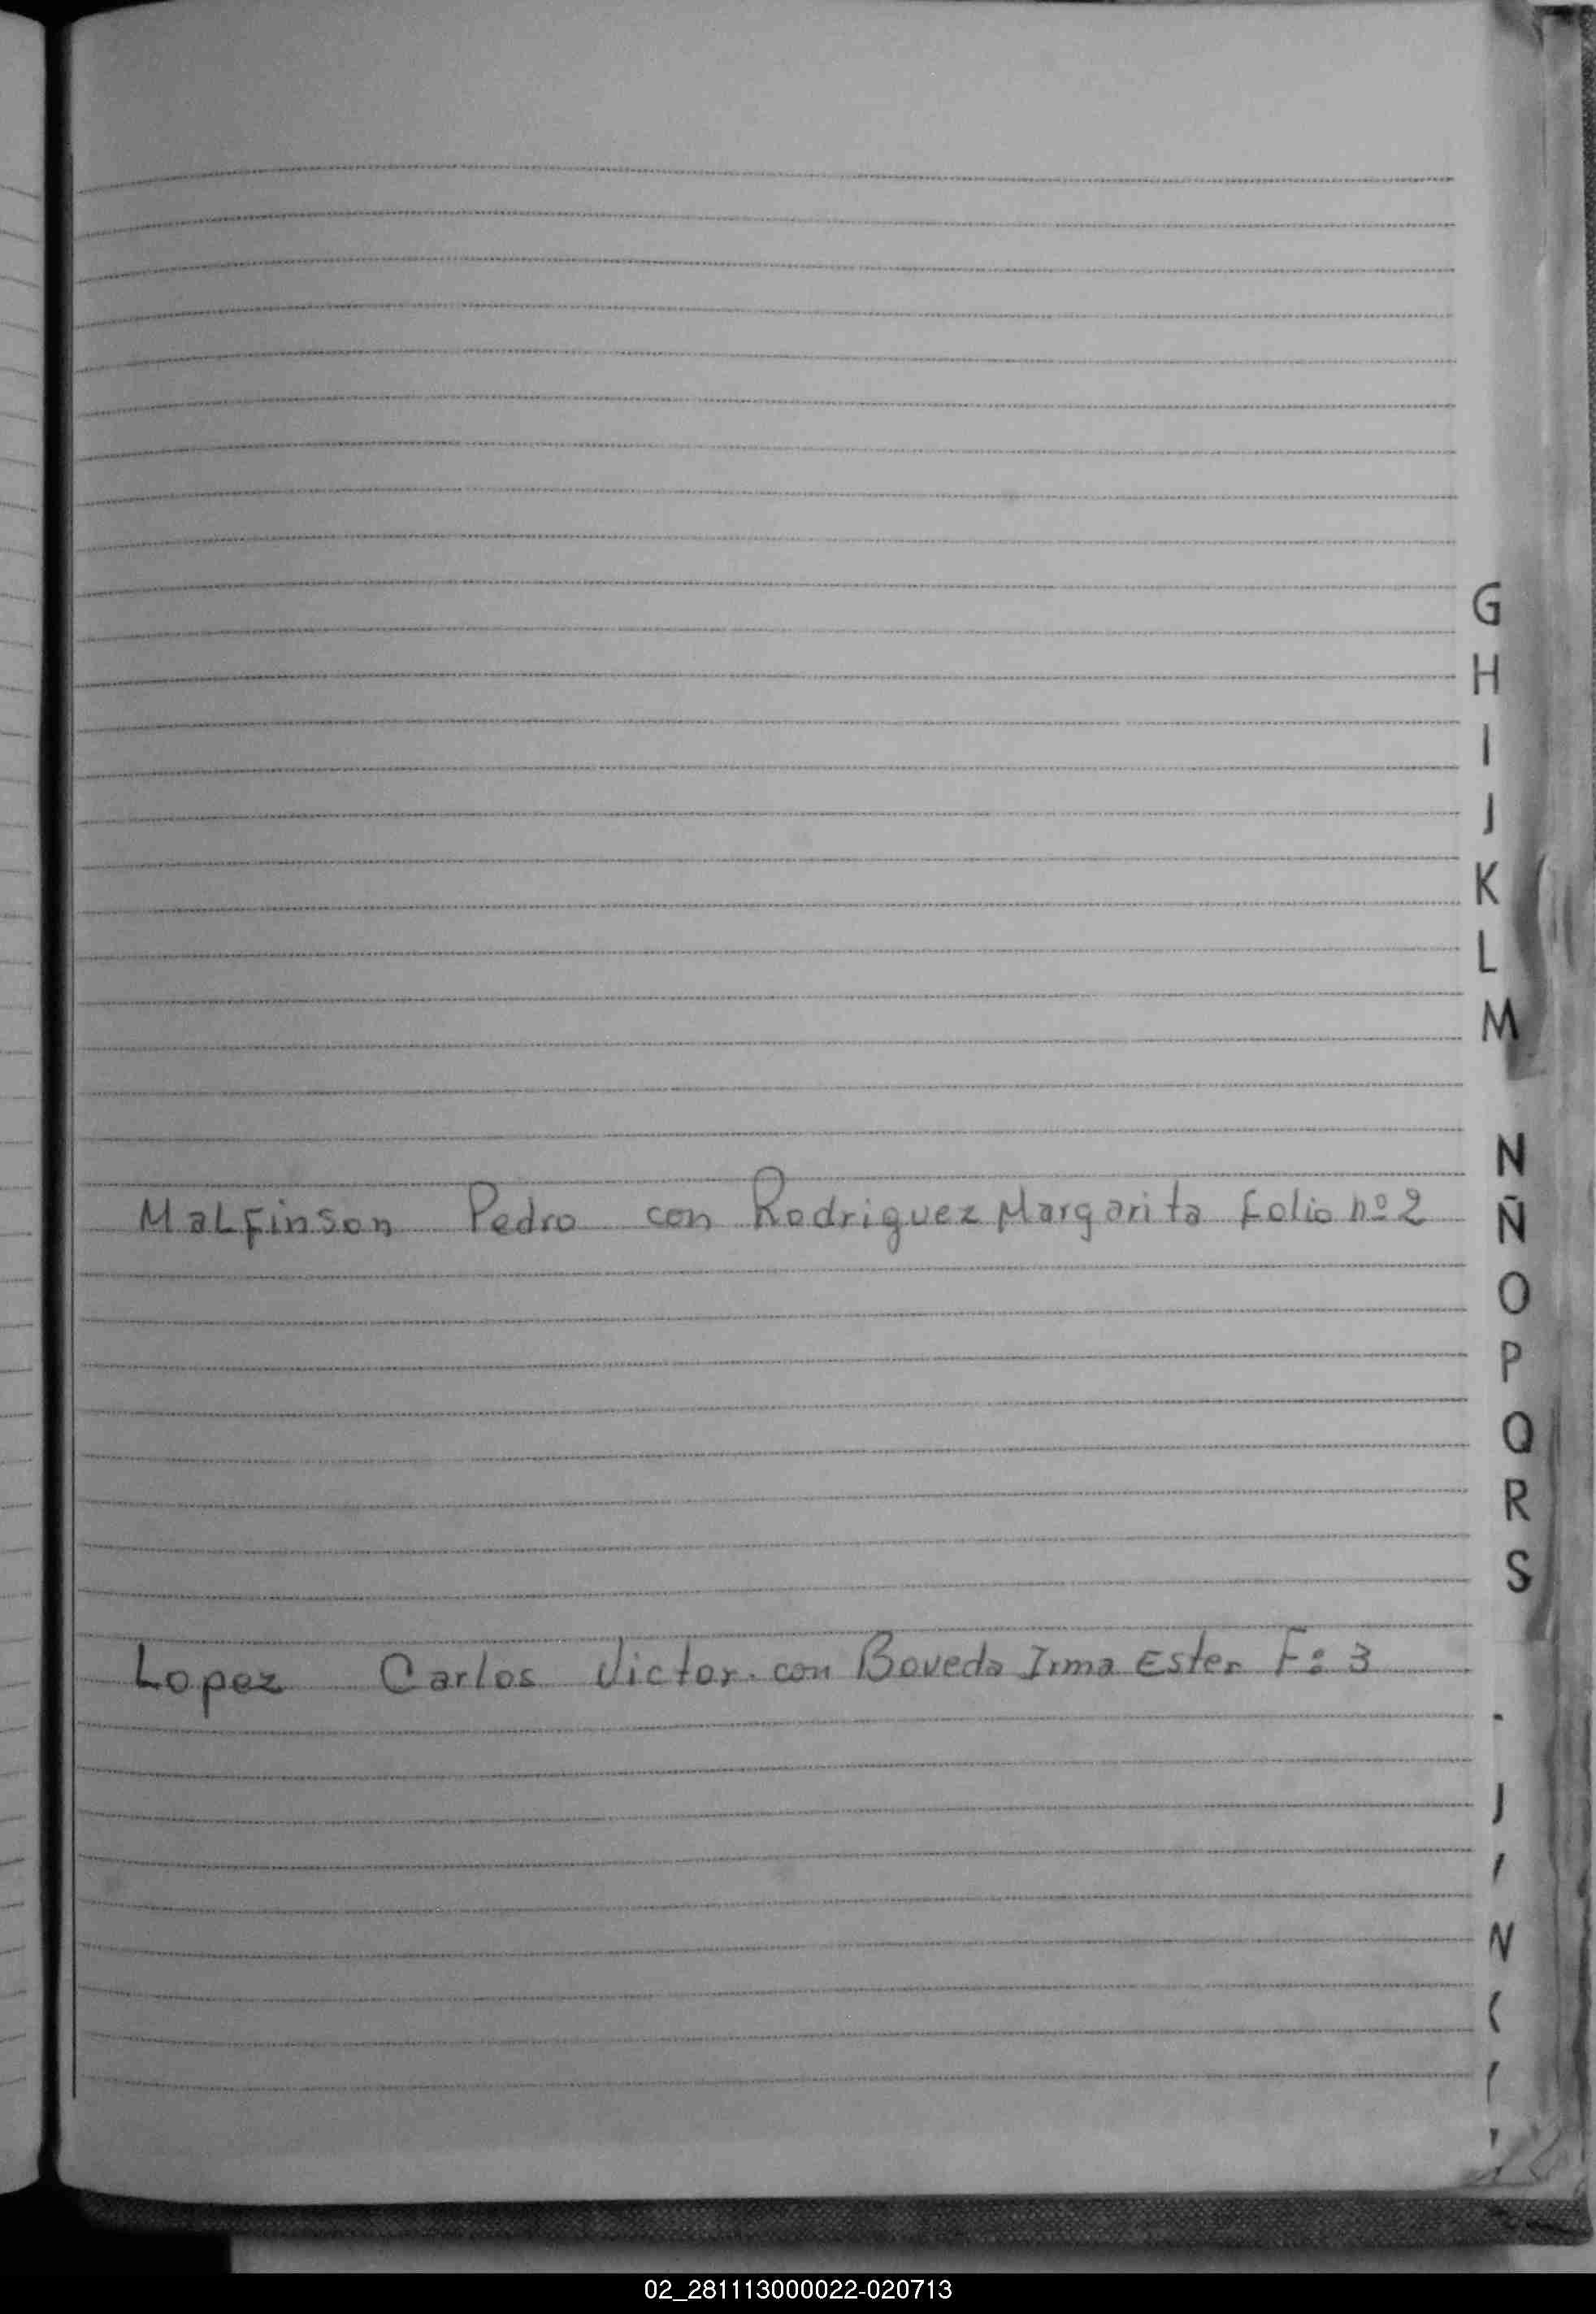 G
H
I
J
K
L
M
N
MaLfinson Pedro con Rodriguez Margarita folio nº 2
Ñ
O
P
Q
R
S
Lopez Carlos Victor. con Boveda Irma Ester F: 3
J
N
02_281113000022-020713